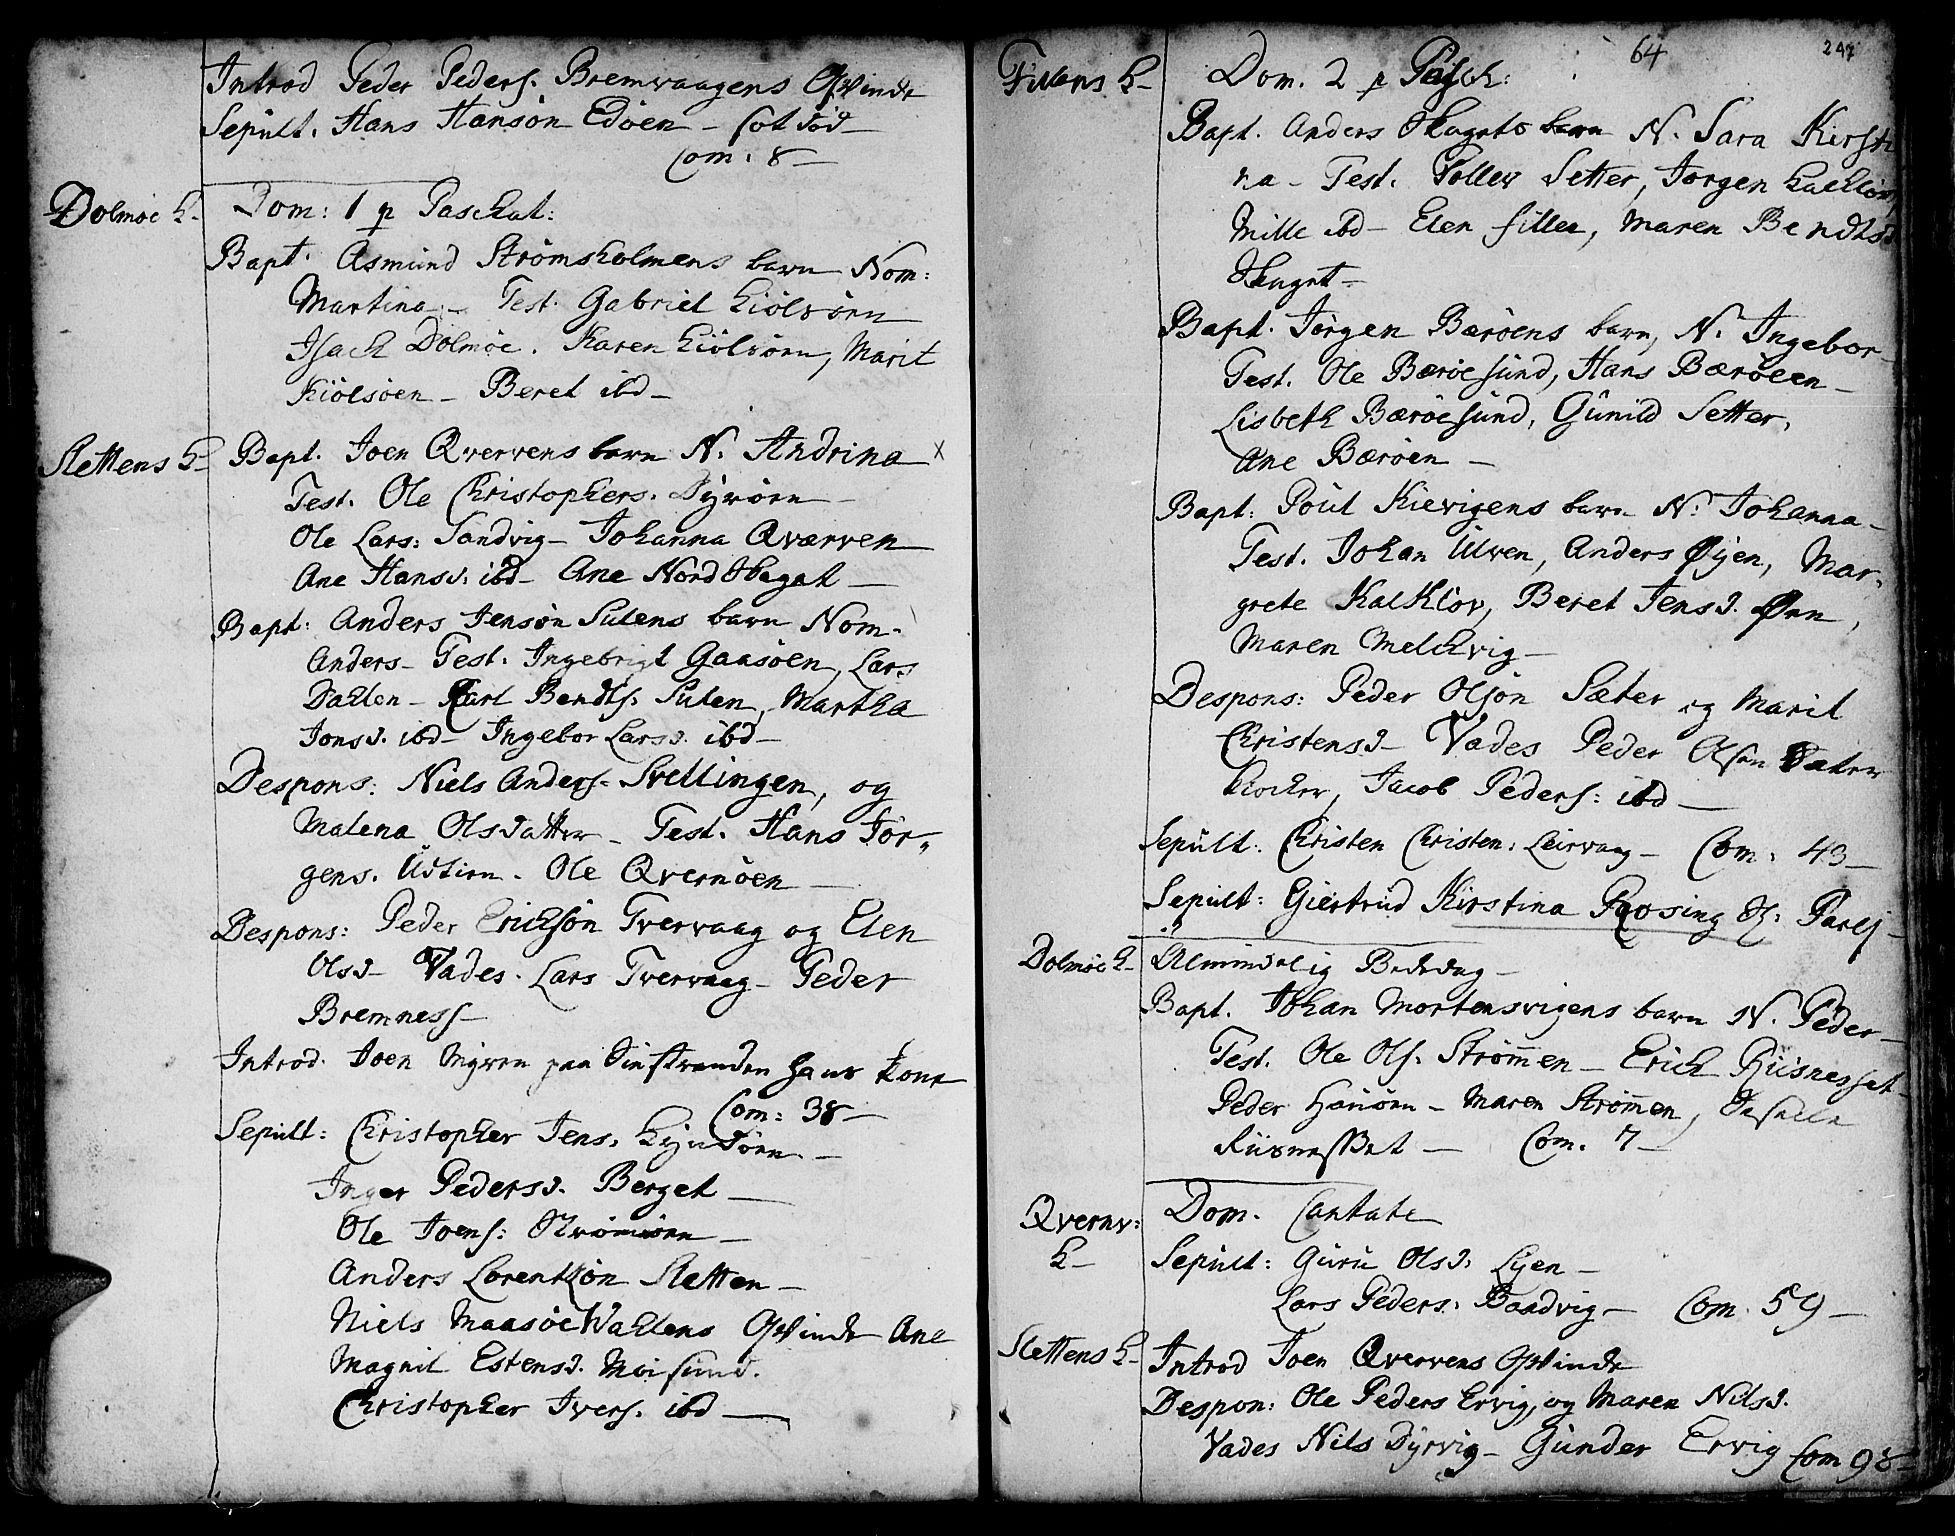 Introd Peder Peders. Bremvaagens Qvinde
Sepult. Hans Hansøn Edøen – Sot død –
Com: 8 –
Dolmøe K– Dom: 1 p Paschat:
Bapt. Asmund Strømsholmens barn Nom:
Martina – Test. Gabriel Kiolsørn
Isach Dolmøe. Karen Kiolsørn, Marit
Kiölsöen – Beret ibd –
Slettens K– Bapt. Joen Qvervens barn N. Andrina x
Test. Ole Christophers. Dyrøen –
Ole Lars: Sandvig – Johanna Qværven
Ane Hansd. ibd – Ane Nord Skaget –
Bapt: Anders Jensøn Sulens barn Nom.
Anders – Test. Ingebrigt Gaasøen, Lars
Dahlen – Karl Bendts. Sulen, Martha
Jonsd. ibd – Ingebor Larsd. ibd –
Despons: Niels Anders. Svellingen, og
Malena Olsdatter – Test. Hans Jør-
gens. Ustirn. Ole Qvernøen –
Despons: Peder Erichsøn Tvervaag og Elen
Olsd – Vades. Lars Tvervaag – Peder
Bremness –
Introd. Joen Myren paa Sinstranden hans kone
Com: 38 –
Sepult: Christopher Jens. –
Inger Pedersd. Berget –
Ole Joens: Strømøen –
Anders Lorentzøn Sletten –
Niels Maasøe Wahlens Qvinde Ane
Magnil Estensd. Moisund.
Christopher Ivers. ibd –
64 247
Fillens K– Dom. 2 p Pasch:
Bapt. Anders Skagets barn N. Sara Kirsti
na – Test. Toller Setter, Jørgen
Mille ibd – Elen Fillen, Maren Bendtsd
Skaget –
Bapt. Jørgen Bærøens barn, N. Ingebor –
Test. Ole Bærøesund, Hans Bærøeen –
Lisbeth Bærøesund, Gunild Setter,
Ane Bærøen –
Bapt: Poul Kievigens barn N. Johanna –
Test. Johan Ulven, Anders Øyen, Mar-
grete Kalkløv, Beret Jensd. Ørn,
Maren Melchvig –
Despons: Peder Olsøn Sæter og Marit
Christensd – Vades Peder Olsen Sæter
Klocker, Jacob Peders: ibd –
Sepult. Christen Christen: Leirvaag – Com. 43 –
Sepult: Giertrud Kirstina Rosing
Dolmøe K– Almindelig Bededag –
Bapt. Johan Mortensvigens barn N. Peder –
Test. Ole Ols. Strømmen – Erich Riisnesset –
Peder Hauøen – Maren Strømmen,
Riisnesset – Com. 7 –
Qvernv: Dom. Cantate
K– Sepult: Guru Olsd. Lyen –
Lars Peders. Baadvig – Com. 59 –
Slettens K– Introd Joen Qvervens Qvinde
Despon: Ole Peders Ervig, og Maren Nilsd.
Vades Nils Dyrvig – Gunder Ervig Com 98 –